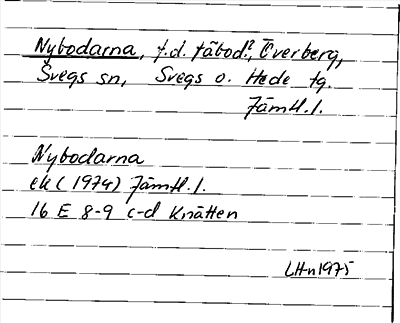 Nybodarna, f.d. fäbod?, Överberg,
Svegs sn, Svegs o. Hede tg.
Jämtl. l.
Nybodarna
ek (1974) Jämtl. l.
16 E 8-9 c-d Knätten
LHn 1975